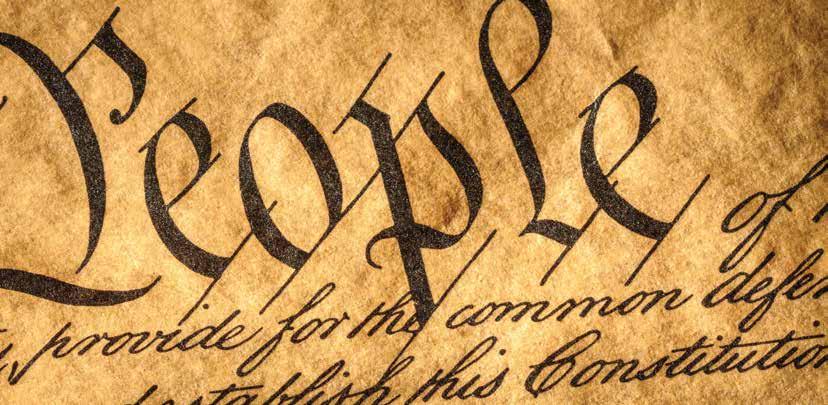 People of
provide for the common defen
establish this Constitution